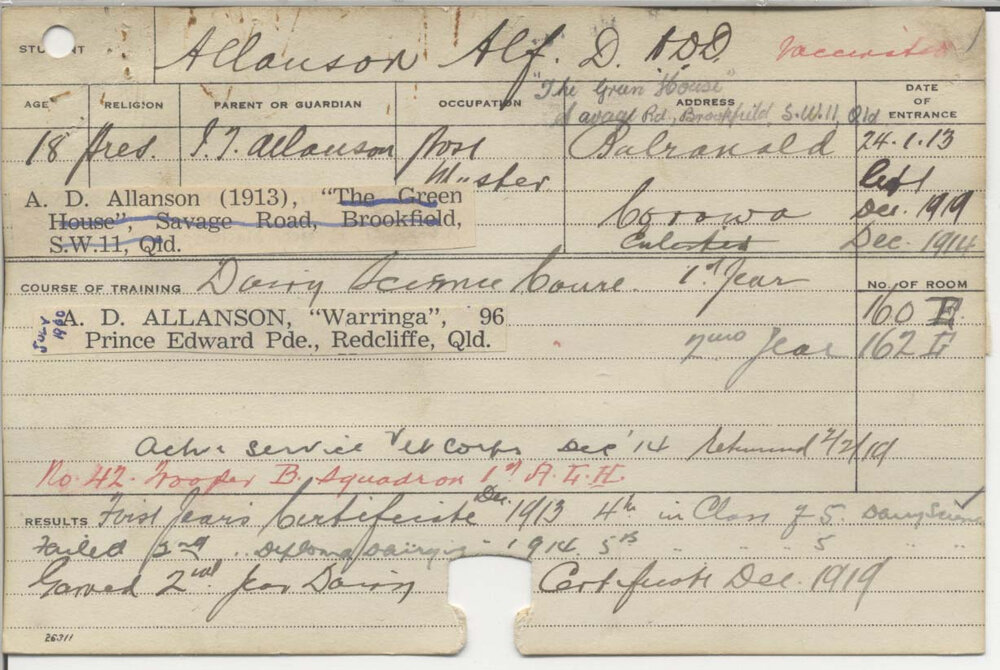 STUDENT Allanson Alf. D. H.D.D. Vaccinated
"The Green House"
AGE RELIGION PARENT OR GUARDIAN OCCUPATION ADDRESS DATE OF ENTRANCE
Savage Rd., Brookfield, S.W.11, Qld
18 Pres. J. T. Allanson Post Master Balranald 24.1.13
Left
A. D. Allanson (1913), "The Green
House", Savage Road, Brookfield,
S.W.11, Qld.
Corowa Dec. 1919
Enlisted Dec. 1914
COURSE OF TRAINING Dairy Science Course. 1st Year
No. OF ROOM
160 E
JULY 1960
A. D. ALLANSON, "Warringa", 96
Prince Edward Pde., Redcliffe, Qld.
2nd Year 162 E
Active Service Vet Corps Dec '14 Returned 2/2/19
No. 42. Trooper B. Squadron 1st A.L.H.
RESULTS First Years Certificate Dec. 1913 4th in Class of 5. Dairy Science
Failed 2nd " Diploma Dairying " 1914. 5th " " " 5 " "
Gained 2nd Year Dairy Certificate Dec. 1919
26311